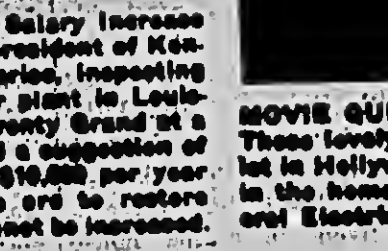 Salary Increase
President of Ken-
Inspecting
plant in Louis-
Grand at a
a suggestion of
per year
are to restore
not be increased.
MOVIE QU
These lovely
in Hollyw
in the home
eral Electr